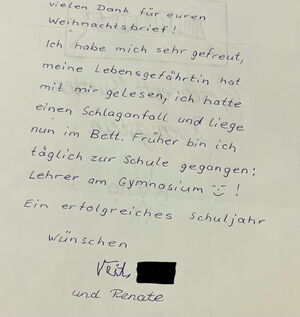 vielen Dank für euren
Weihnachtsbrief!
Ich habe mich sehr gefreut,
meine Lebensgefährtin hat
mit mir gelesen, ich hatte
einen Schlaganfall und liege
nun im Bett. Früher bin ich
täglich zur Schule gegangen:
Lehrer am Gymnasium !
Ein erfolgreiches Schuljahr
wünschen
Veit
und Renate